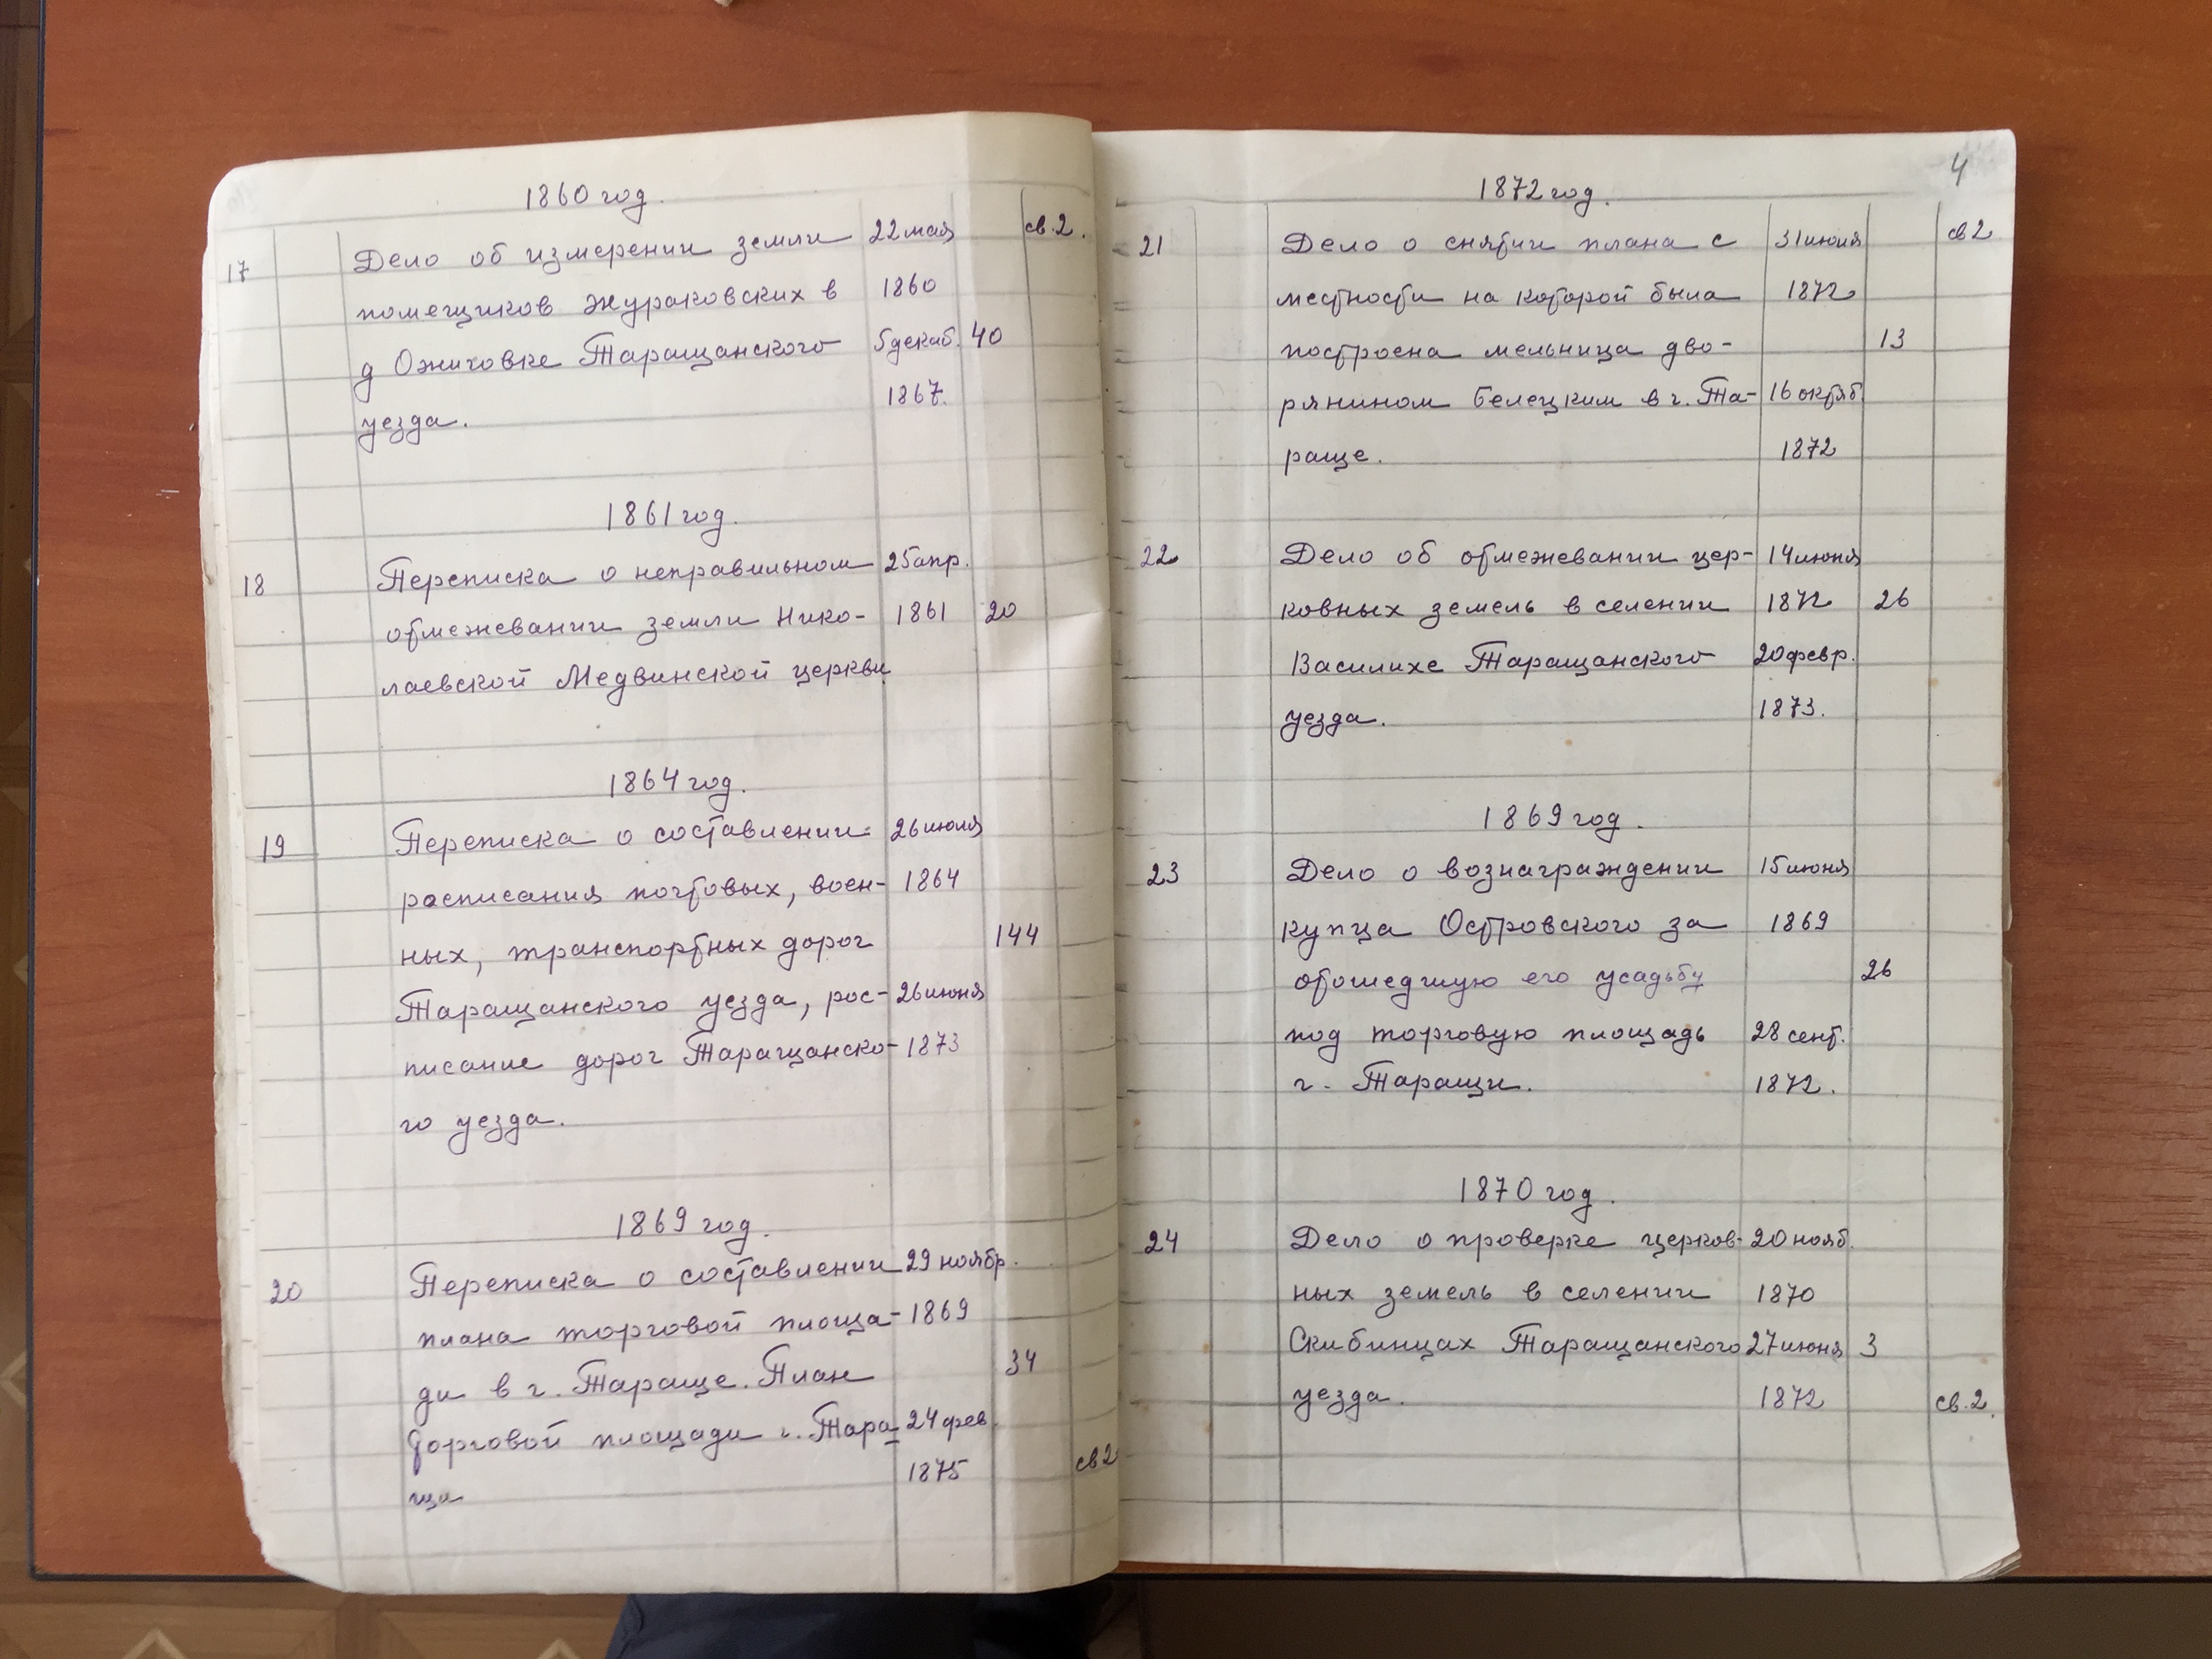 1860 год.
17 Дело об измерении земли 22 мая св. 2.
помещиков Жураковских в 1860
д Ожиговке Таращанского 5 декаб. 40
уезда. 1867.
1861 год.
18 Переписка о неправильном 25 апр.
отмежевании земли Нико- 1861 20
лаевской Медвинской церкви
1864 год.
19 Переписка о составлении 26 июля
расписания почтовых, воен- 1864
ных, транспортных дорог 144
Таращанского уезда, рос- 26 июня
писание дорог Таращанско- 1873
го уезда.
1869 год.
20 Переписка о составлении 29 ноябр.
плана торговой площа- 1869
ди в г. Тараще. План 34
торговой площади г. Тара- 24 фев.
щи 1875 св 2
4
1872 год.
21 Дело о снятии плана с 31 июля св 2
местности на которой была 1872
построена мельница дво- 13
рянином Белецким в г. Та- 16 октяб.
раще. 1872
22 Дело об отмежевании цер- 14 июня
ковных земель в селении 1872 26
Василихе Таращанского 20 февр.
уезда. 1873.
1869 год.
23 Дело о вознаграждении 15 июня
купца Островского за 1869
отошедшую его усадьбу 26
под торговую площадь 28 сент.
г. Таращи. 1872.
1870 год.
24 Дело о проверке церков- 20 нояб.
ных земель в селении 1870
Скибинцах Таращанского 27 июня 3
уезда. 1872 св. 2.